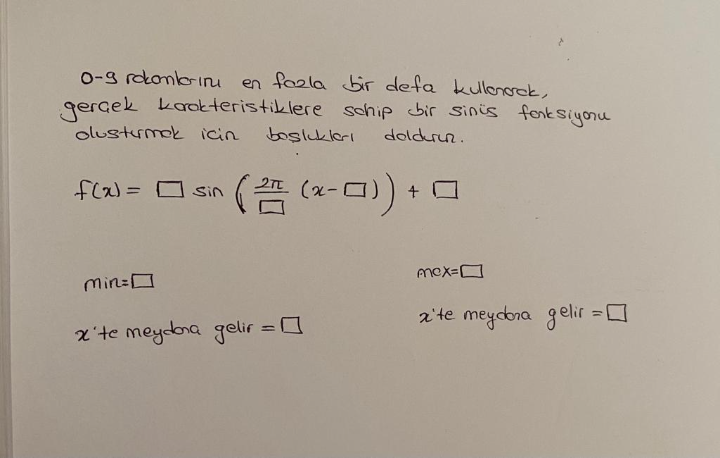 0-9 rakamlarını en fazla bir defa kullanarak,
gerçek karakteristiklere sahip bir sinüs fonksiyonu
oluşturmak için boşlukları doldurun.
f(x) = □ sin (2π/□ (x-□)) + □
min=□ max=□
x'te meydana gelir = □ x'te meydana gelir = □